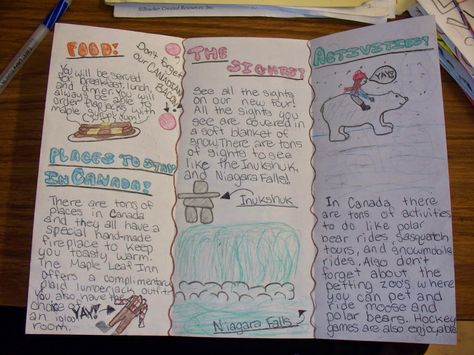 ©Teacher Created Resources, Inc.
FOOD!
Don't forget
our CANADIAN
BACON
You will be served
breakfast, lunch,
and dinner
always be able to
order flapjacks with
maple
PLACES TO STAY
IN CANADA!
There are tons of
places in Canada
and they all have a
special hand-made
fireplace to keep
you toasty warm.
The Maple Leaf Inn
offers a complimentary
plaid lumberjack outfit
You also have the
choice of
an igloo
room.
YAY!
THE
SIGHTS!
See all the sights
on our new tour!
All the sights you
see are covered in
a soft blanket of
snow. There are tons
of sights to see
like the Inukshuk,
and Niagara Falls!
Inukshuk
Niagara Falls
ACTIVITIES!
YAY!
In Canada, there
are tons of activities
to do like polar
bear rides, sasquatch
tours, and snowmobile
rides. Also don't
forget about the
petting zoo's where
you can pet and
ride moose and
polar bears. Hockey
games are also enjoyable